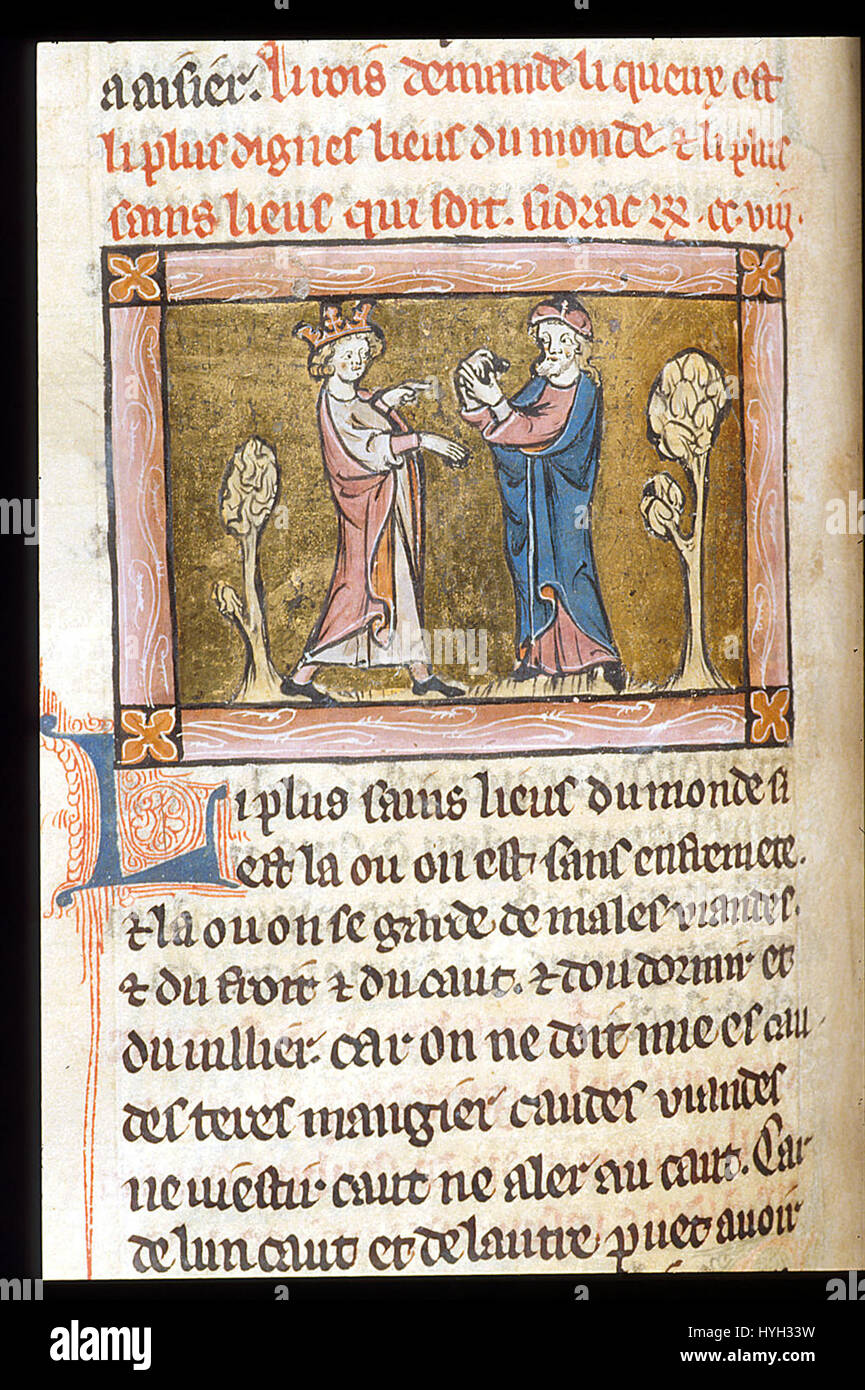 aaisier. Li rois demande li queux est
li plus dignes lieus du monde ⁊ li plus
sains lieus qui soit. sidrac
Li plus sains lieus du monde si
est la ou on est sans enfermete.
⁊ la ou on se garde de males viandes.
⁊ du froit ⁊ du caut. ⁊ dou dormir et
du villier. car on ne doit mie es cau
des teres mangier caudes viandes
ne viestir caut ne aler au caut. Car
de lun caut et de lautre puet avoir
alamy
Image ID: HYH33W
www.alamy.com